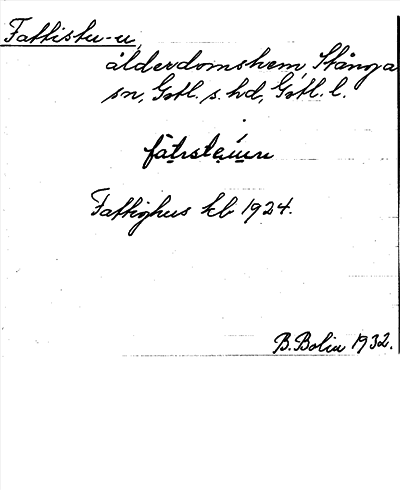 Fattistu-u,
ålderdomshem, Stånga
sn, Gotl. s. hd, Gotl. l.
Fattighus kb 1924.
B. Bolin 1932.